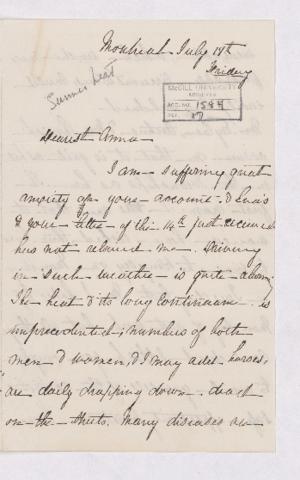 Montreal July 17th
Friday
Summer heat
McGILL UNIVERSITY
ARCHIVES
ACC. NO. 1584
REF. 17
Dearest Anna
I am suffering great
anxiety on your account. &
& your letter of the 14th just received
has not relieved me. Driving
in such weather is quite
The heat & its long continuance is
unprecedented; numbers of both
men & women, & I may add horses,
are daily dropping down dead
on the streets. Many diseases are